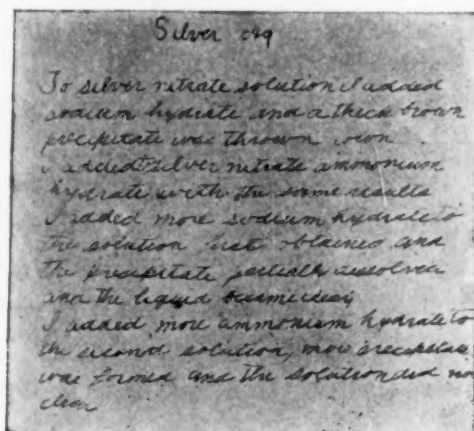 Silver
To silver nitrate solution I added
sodium hydrate and a thick brown
precipitate was thrown down
I added to silver nitrate ammonium
hydrate with the same results
I added more sodium hydrate to
the solution first obtained and
the precipitate partially dissolved
and the liquid became clear
I added more ammonium hydrate to
the second solution, more precipitate
was formed and the solution did not
clear